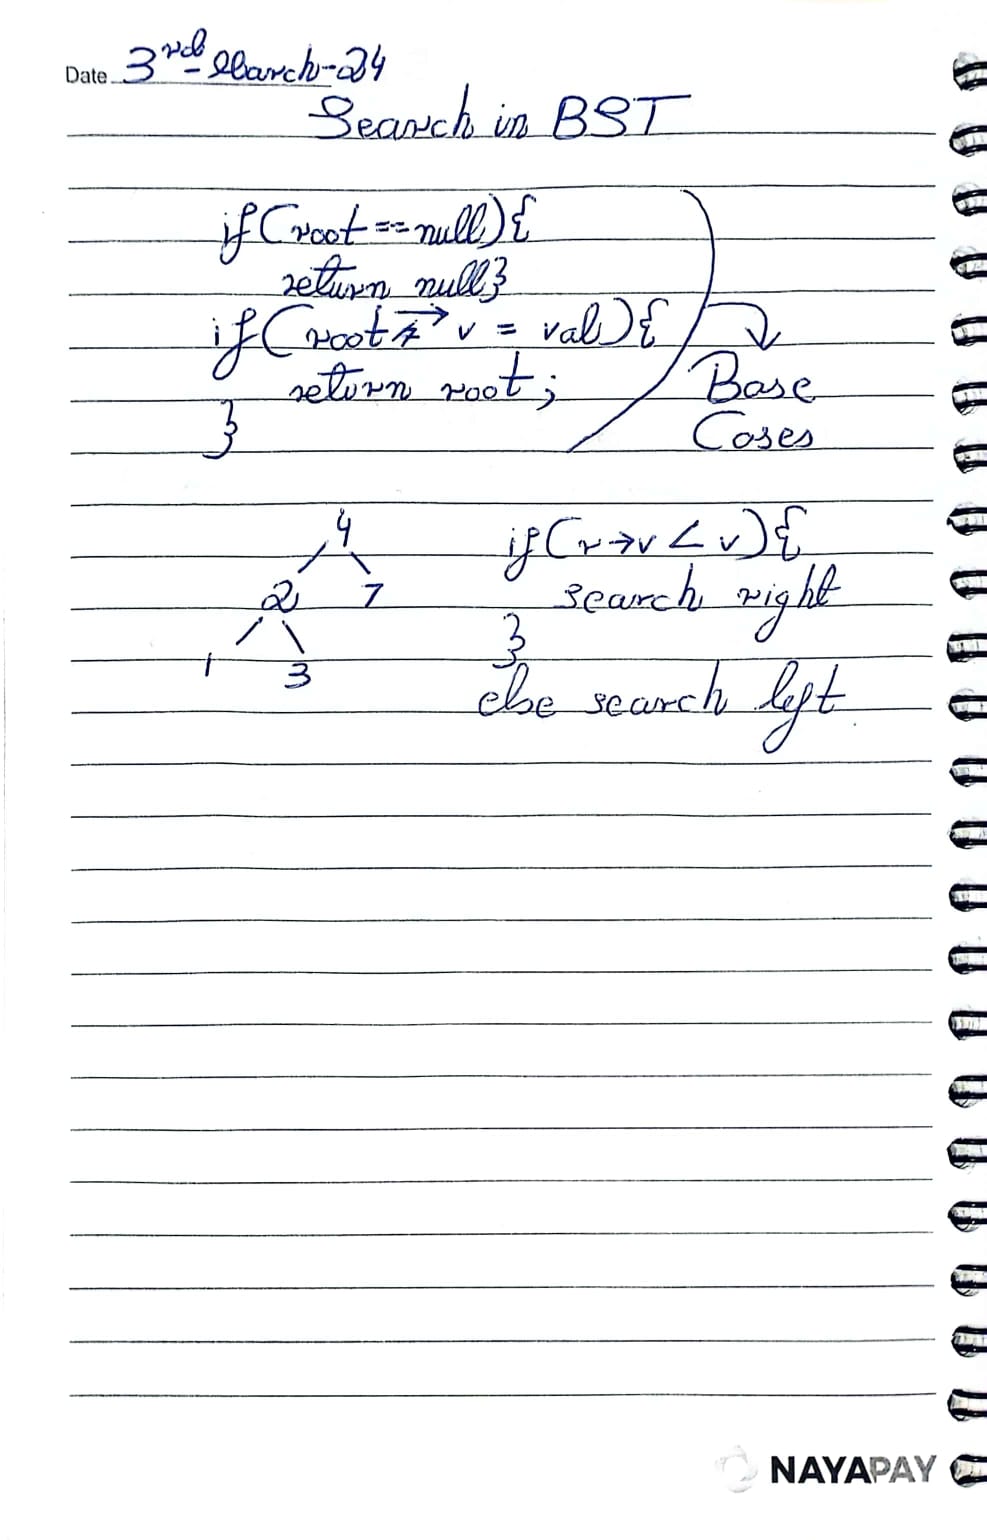 Date 3rd-March-24
Search in BST
if(root==null){
return null}
if(root→v = val){
return root;
}
Base
Cases
4
2 7
1 3
if(r→v<v){
search right
}
else search left
NAYAPAY